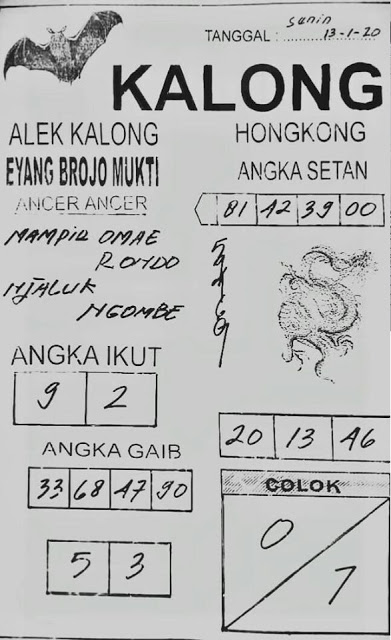 TANGGAL : Senin
13-1-20
KALONG
ALEK KALONG
EYANG BROJO MUKTI
ANCER ANCER
MAMPIR OMAE
RONDO
NJALUK
NGOMBE
HONGKONG
ANGKA SETAN
81 42 39 00
ANGKA IKUT
9 2
ANGKA GAIB
33 68 47 90
5 3
20 13 46
COLOK
0
7